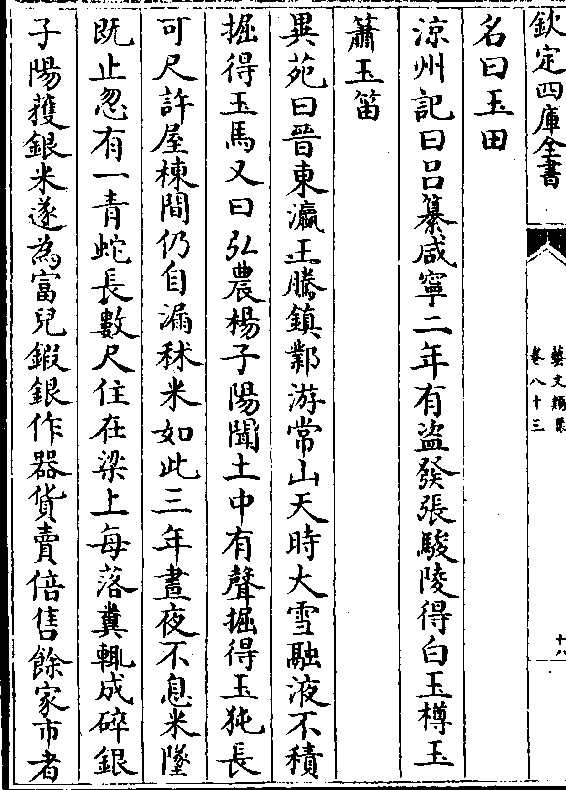 欽定四庫全書
藝文類聚
卷八十三
十八
名曰玉田
涼州記曰呂纂咸寧二年有盜發張駿陵得白玉樽玉
簫玉笛
異苑曰晉東瀛王騰鎮鄴游常山天時大雪融液不積
掘得玉馬又曰弘農楊子陽聞土中有聲掘得玉㹠長
可尺許屋棟間仍自漏秫米如此三年晝夜不息米墜
既止忽有一青蛇長數尺住在梁上每落糞輒成碎銀
子陽獲銀米遂為富兒鍜銀作器貨賣倍售餘家市者